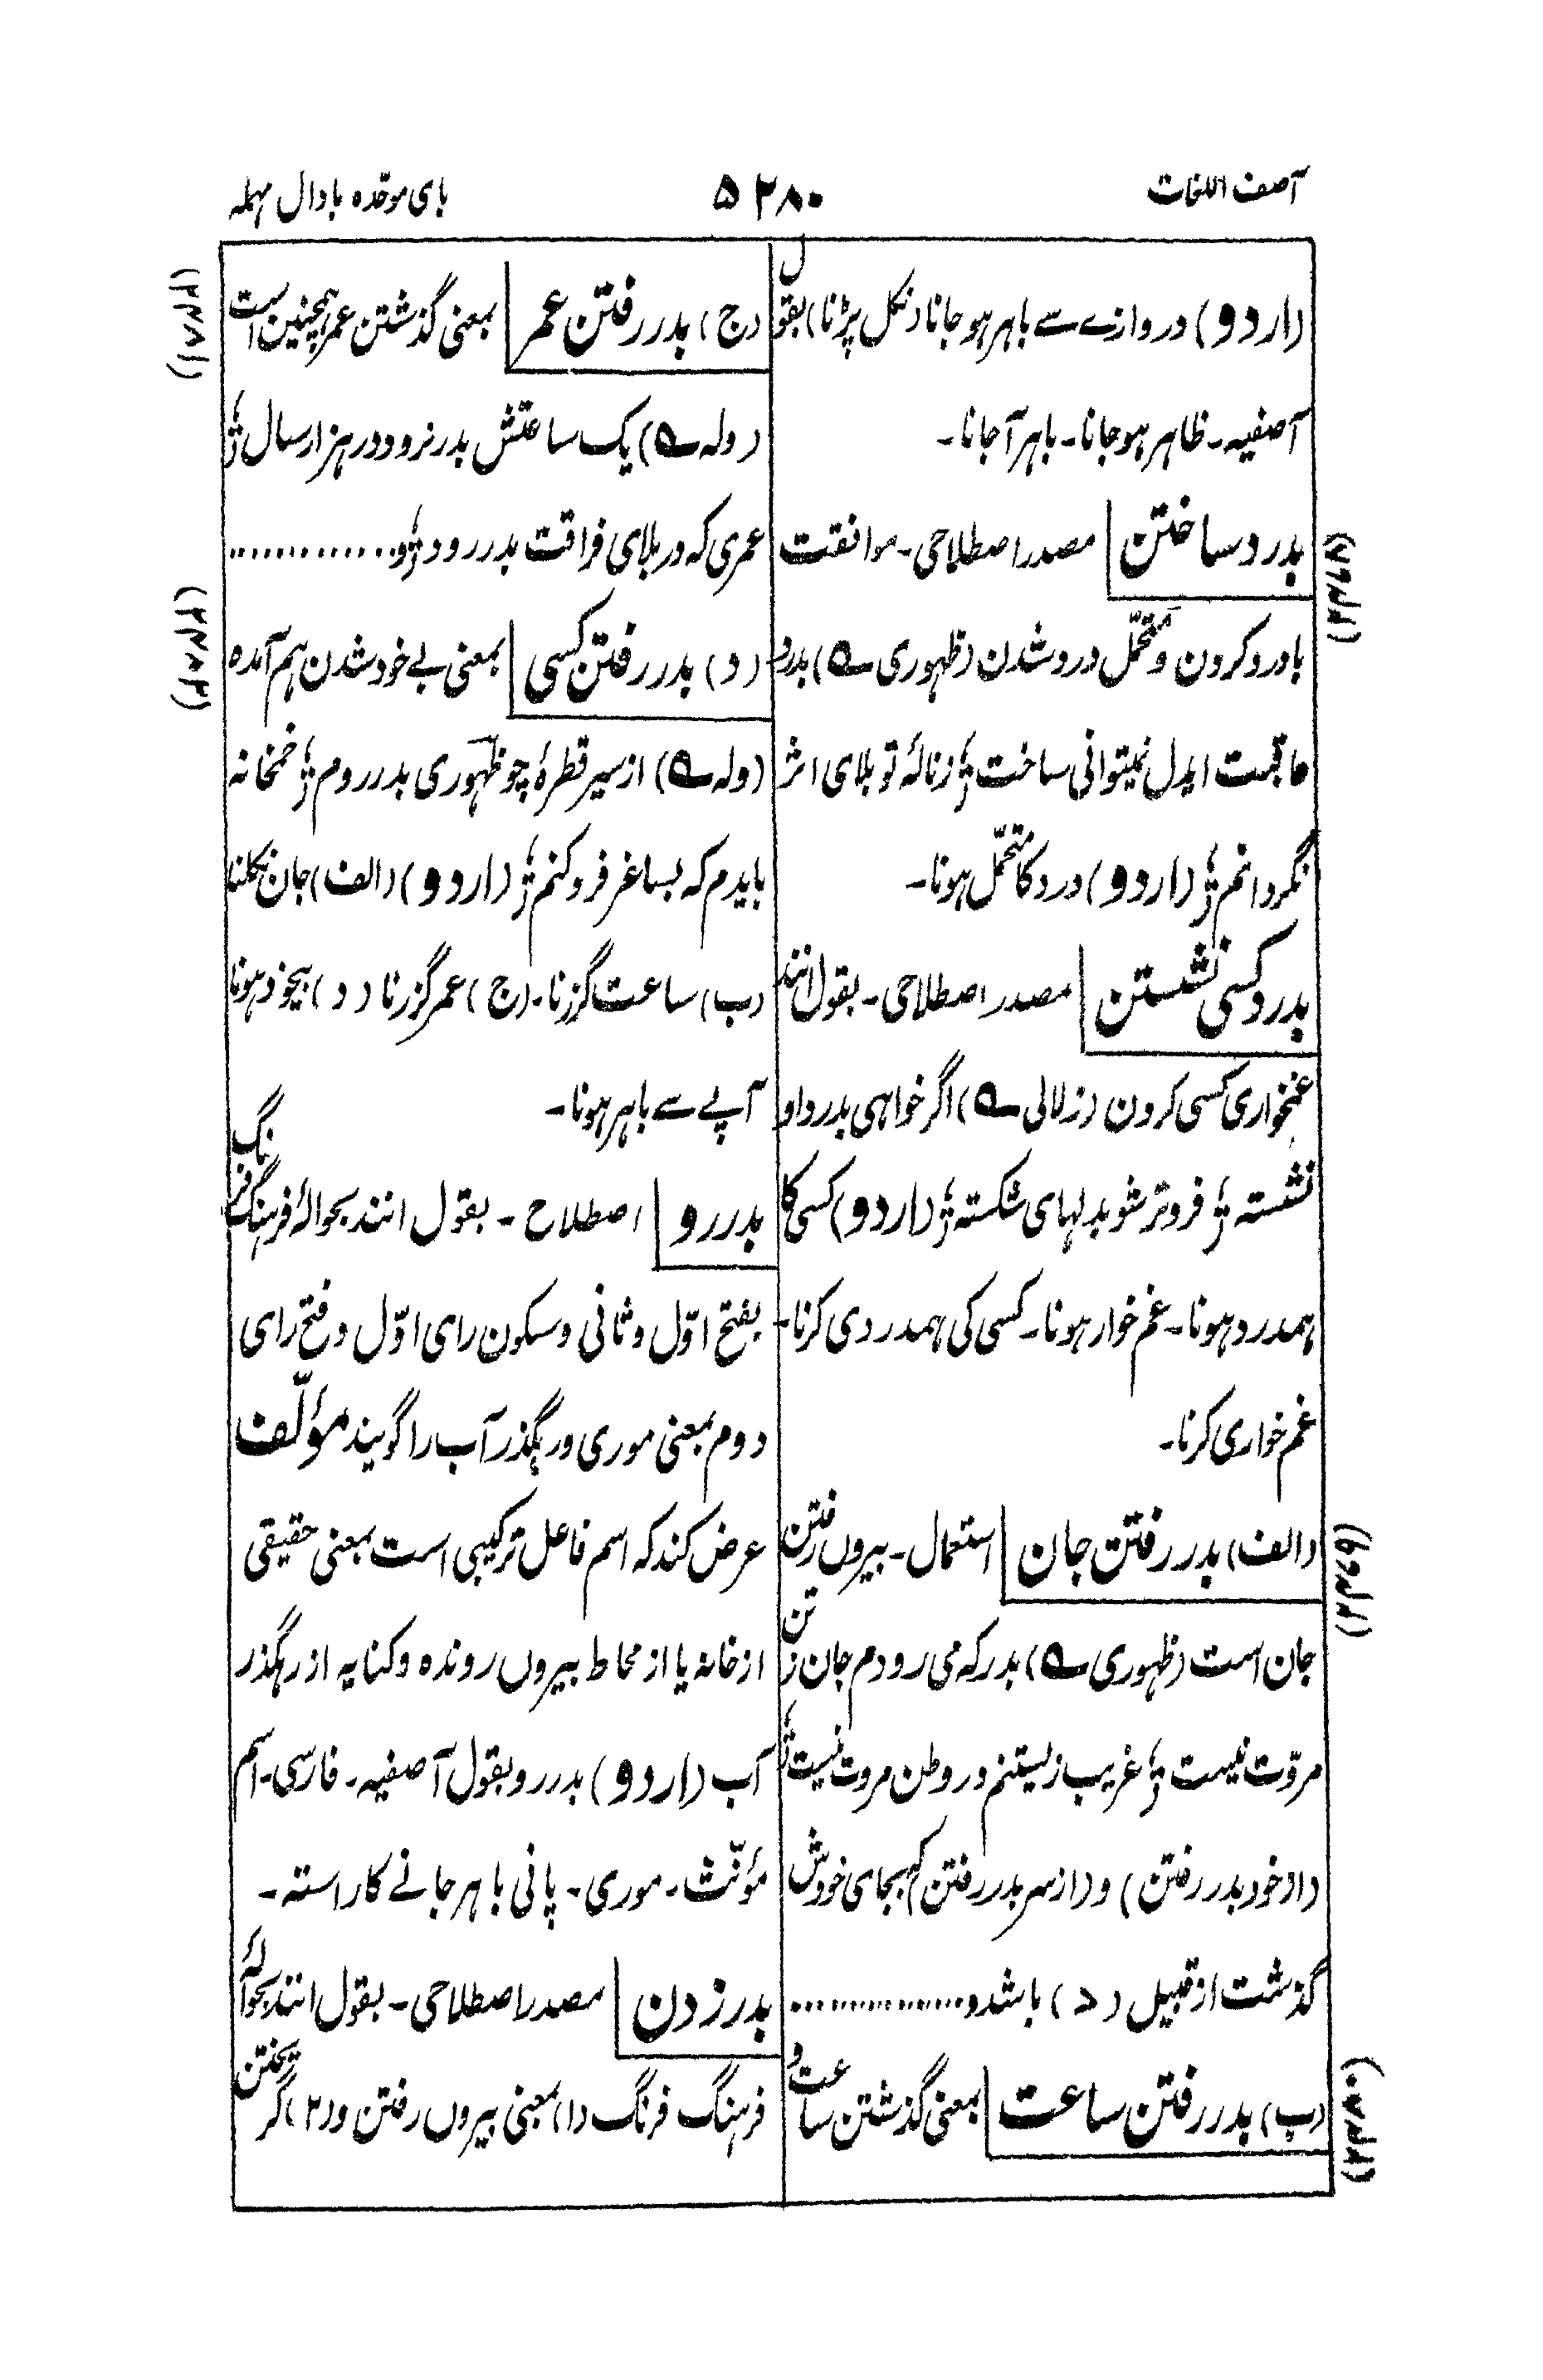 آصف اللغات
۵۲۸۰
بای موحّده با دال مہملہ
(اردو) دروازے سے باہر ہو جانا (نکل پڑنا) بقول
آصفیہ۔ ظاہر ہو جانا۔ باہر آجانا۔
بدرد ساختن | مصدر اصطلاحی۔ موافقت
با درد کردن و متحمّل درد شدن (ظہوری ؎) بدرد
عاقبت ایدل نمیتوانی ساخت ؛ ز نالۂ تو بلای اثر
نگردانم ؛ (اردو) درد کا متحمّل ہونا۔
بدرد کسی نشستن | مصدر اصطلاحی۔ بقول انند
غمخواری کسی کردن (زلالی ؎) اگر خواہی بدرد او
نشستہ ؛ فروتر شو بدلہای شکستہ ؛ (اردو) کسی کا
ہمدرد ہونا۔ غم خوار ہونا۔ کسی کی ہمدردی کرنا۔
غم خواری کرنا۔
(الف) بدر رفتن جان | استعمال۔ بیروں رفتن
جان است (ظہوری ؎) بدر کہ می رودم جان ز تن
مروّت نیست ؛ غریب زیستنم در وطن مروت نیست ؛
(از خود بدر رفتن) و (از سر بدر رفتن) کہ بجای خودش
گذشت از قبیل (د) باشد و ...............
(ب) بدر رفتن ساعت | بمعنی گذشتن ساعت و
(ج) بدر رفتن عمر | بمعنی گذشتن عمر ہمچنین است
(ولہ ؎) یک ساعتش بدر نرود در ہزار سال ؛
عمری کہ در بلای فراقت بدر رود ؛ و ..............
(د) بدر رفتن کسی | بمعنی بے خود شدن ہم آمدہ
(ولہ ؎) از سیر قطرۂ چو ظہوری بدر روم ؛ خمخانہ
بایدم کہ بساغر فرو کنم ؛ (اردو) (الف) جان نکلنا
(ب) ساعت گزرنا۔ (ج) عمر گزرنا (د) بیخود ہونا
آپے سے باہر ہونا۔
بدر رو | اصطلاح۔ بقول انند بحوالۂ فرہنگ فرنگ
بفتح اوّل و ثانی و سکون رای اوّل و فتح رای
دوم بمعنی موری و رہگذر آب را گویند مؤلّف
عرض کند کہ اسم فاعل ترکیبی است بمعنی حقیقی
از خانہ یا از محاط بیروں روندہ و کنایہ از رہگذر
آب (اردو) بدر رو بقول آصفیہ۔ فارسی۔ اسم
مؤنّث۔ موری۔ پانی باہر جانے کا راستہ۔
بدر زدن | مصدر اصطلاحی۔ بقول انند بحوالۂ
فرہنگ فرنگ (۱) بمعنی بیروں رفتن و (۲) گریختن